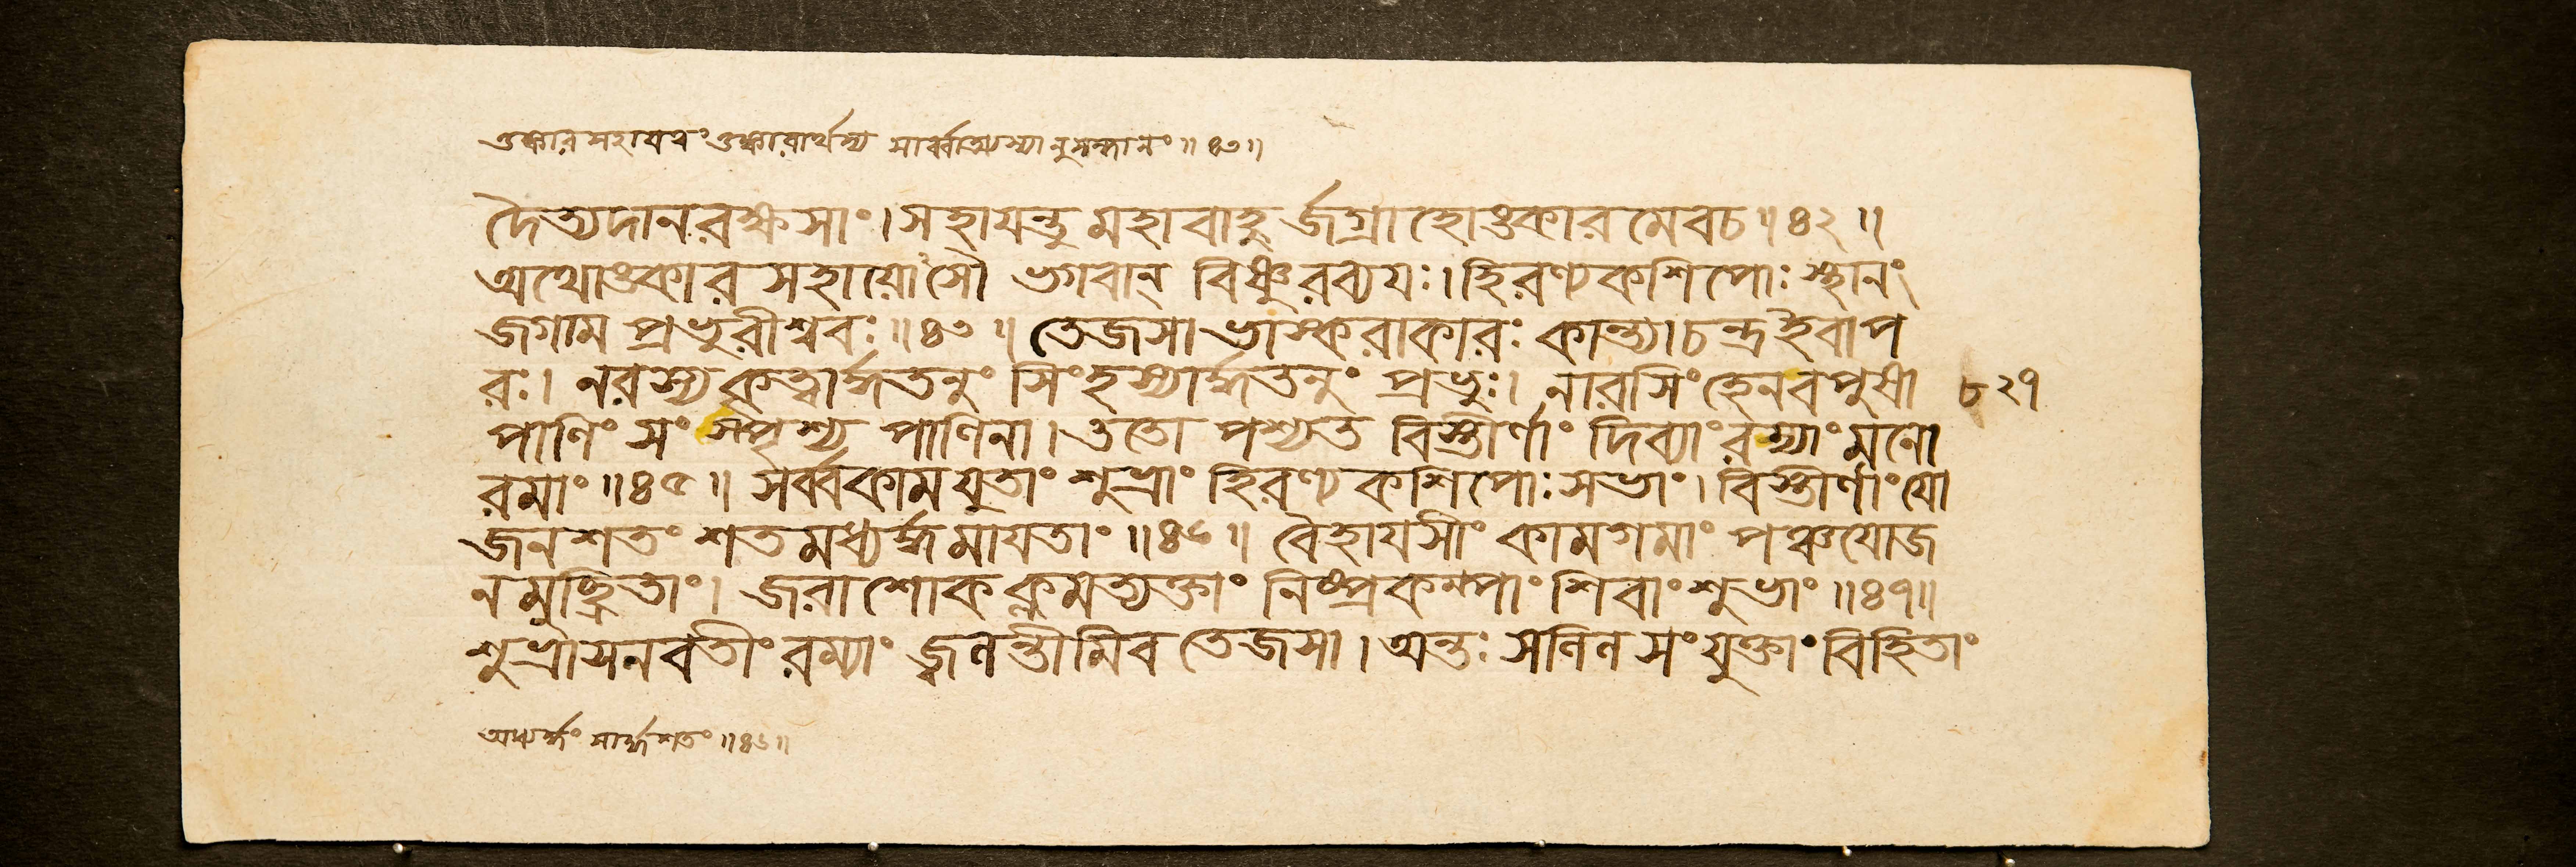 ওঙ্কারসহাযবত্বং ওঙ্কারার্থস্য সার্ব্বাত্ম্যস্যানুসন্ধানং॥৪৩॥
দৈত্যদানবরক্ষসাং।সহাযন্তু মহাবাহুর্জগ্রাহোওকারমেবচ॥৪২॥
অথোওকারসহাযোঽসৌ ভগবান্ বিষ্ণুরব্যযঃ।হিরণ্যকশিপোঃ স্থানং
জগাম প্রভুরীশ্বরঃ॥৪৩॥ তেজসা ভাস্করাকারঃ কান্ত্যাচন্দ্রইবাপ
রঃ। নরস্যকৃত্বার্দ্ধতনুং সিংহস্যার্দ্ধতনুং প্রভুঃ। নারসিংহেনবপুষা
৮২৭
পাণিং সংস্পৃশ্য পাণিনা।ততো পশ্যত বিস্তীর্ণাং দিব্যাং রম্যাং মনো
রমাং॥৪৫॥ সর্ব্বকামযুতাং শুভ্রাং হিরণ্যকশিপোঃসভাং।বিস্তীর্ণাং যো
জনশতং শতমধ্যর্দ্ধমাযতাং॥৪৬॥ বৈহাযসীং কামগমাং পঞ্চযোজ
নমুচ্ছ্রিতাং। জরাশোকক্লমত্যক্তাং নিষ্প্রকম্পাং শিবাং শুভাং॥৪৭॥
শুভ্রাসনবতীং রম্যাং জ্বলন্তীমিব তেজসা।অন্তঃ সলিলসংযুক্তাং বিহিতাং
অধ্যর্দ্ধং সার্দ্ধশতং॥৪৬॥